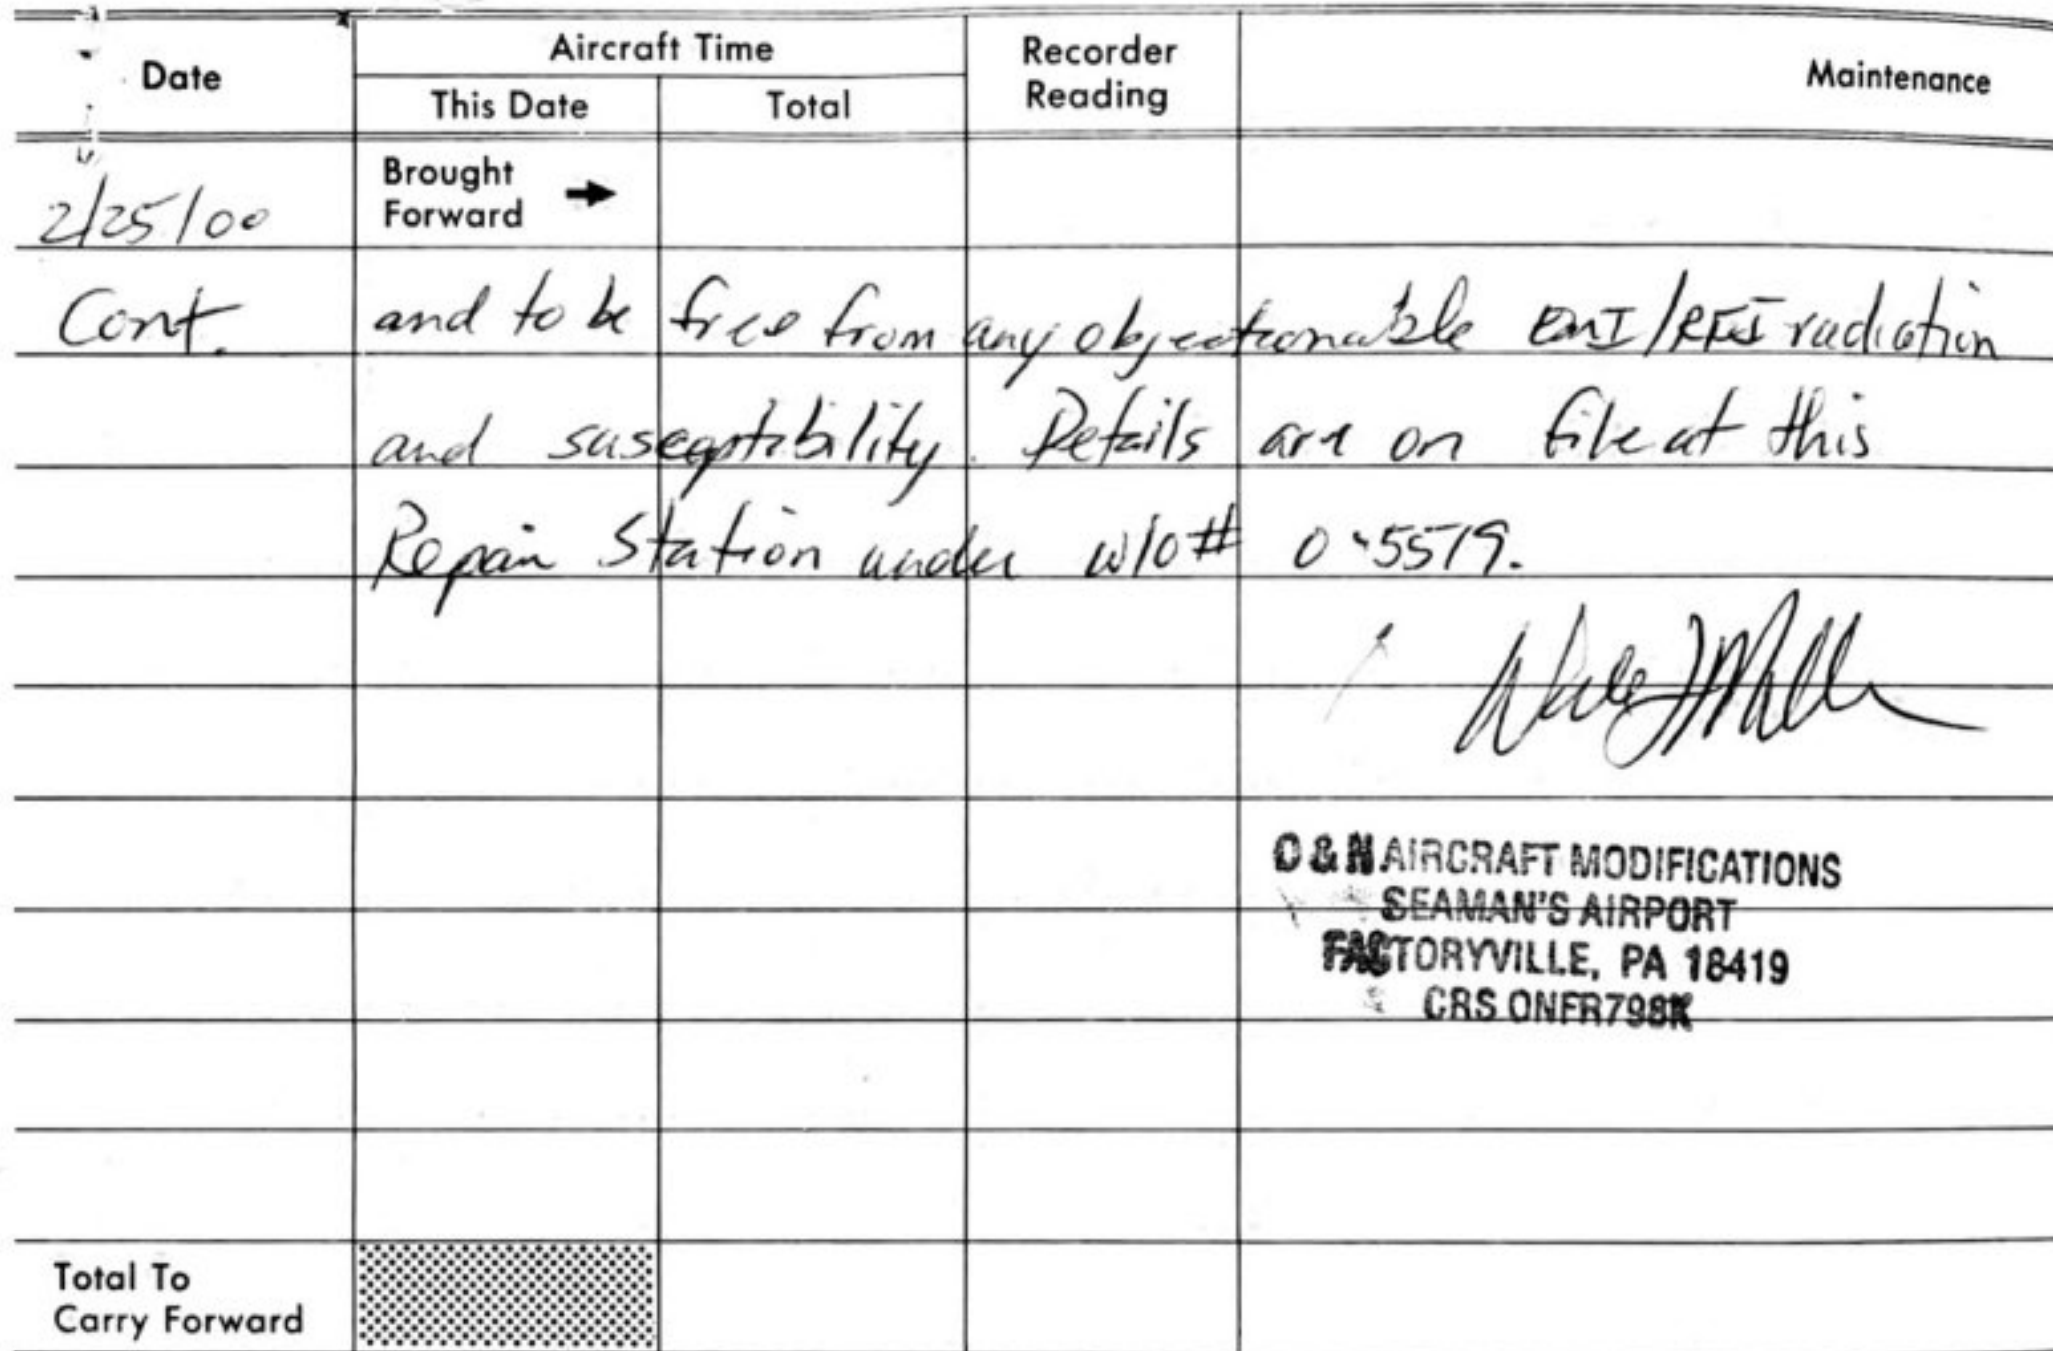 Date Aircraft Time Recorder Reading Maintenance
This Date Total
2/25/00 Brought Forward →
Cont. and to be free from any objectionable EMI/RFI radiation
and susceptibility. Details are on file at this
Repair Station under w/o# 0-5519.
O & N AIRCRAFT MODIFICATIONS
SEAMAN'S AIRPORT
FACTORYVILLE, PA 18419
CRS ONFR798K
Total To
Carry Forward